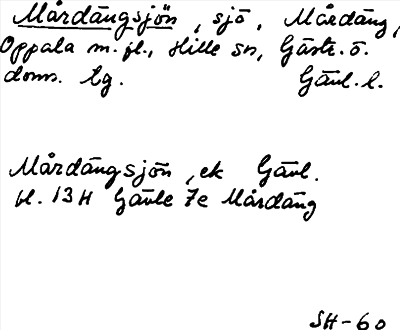 Mårdängsjön, sjö, Mårdäng,
Oppala m. fl., Hille sn, Gästr. ö.
doms. lg. Gävl. l.
Mårdängsjön, ek Gävl.
bl. 13H Gävle 7e Mårdäng
SH-60